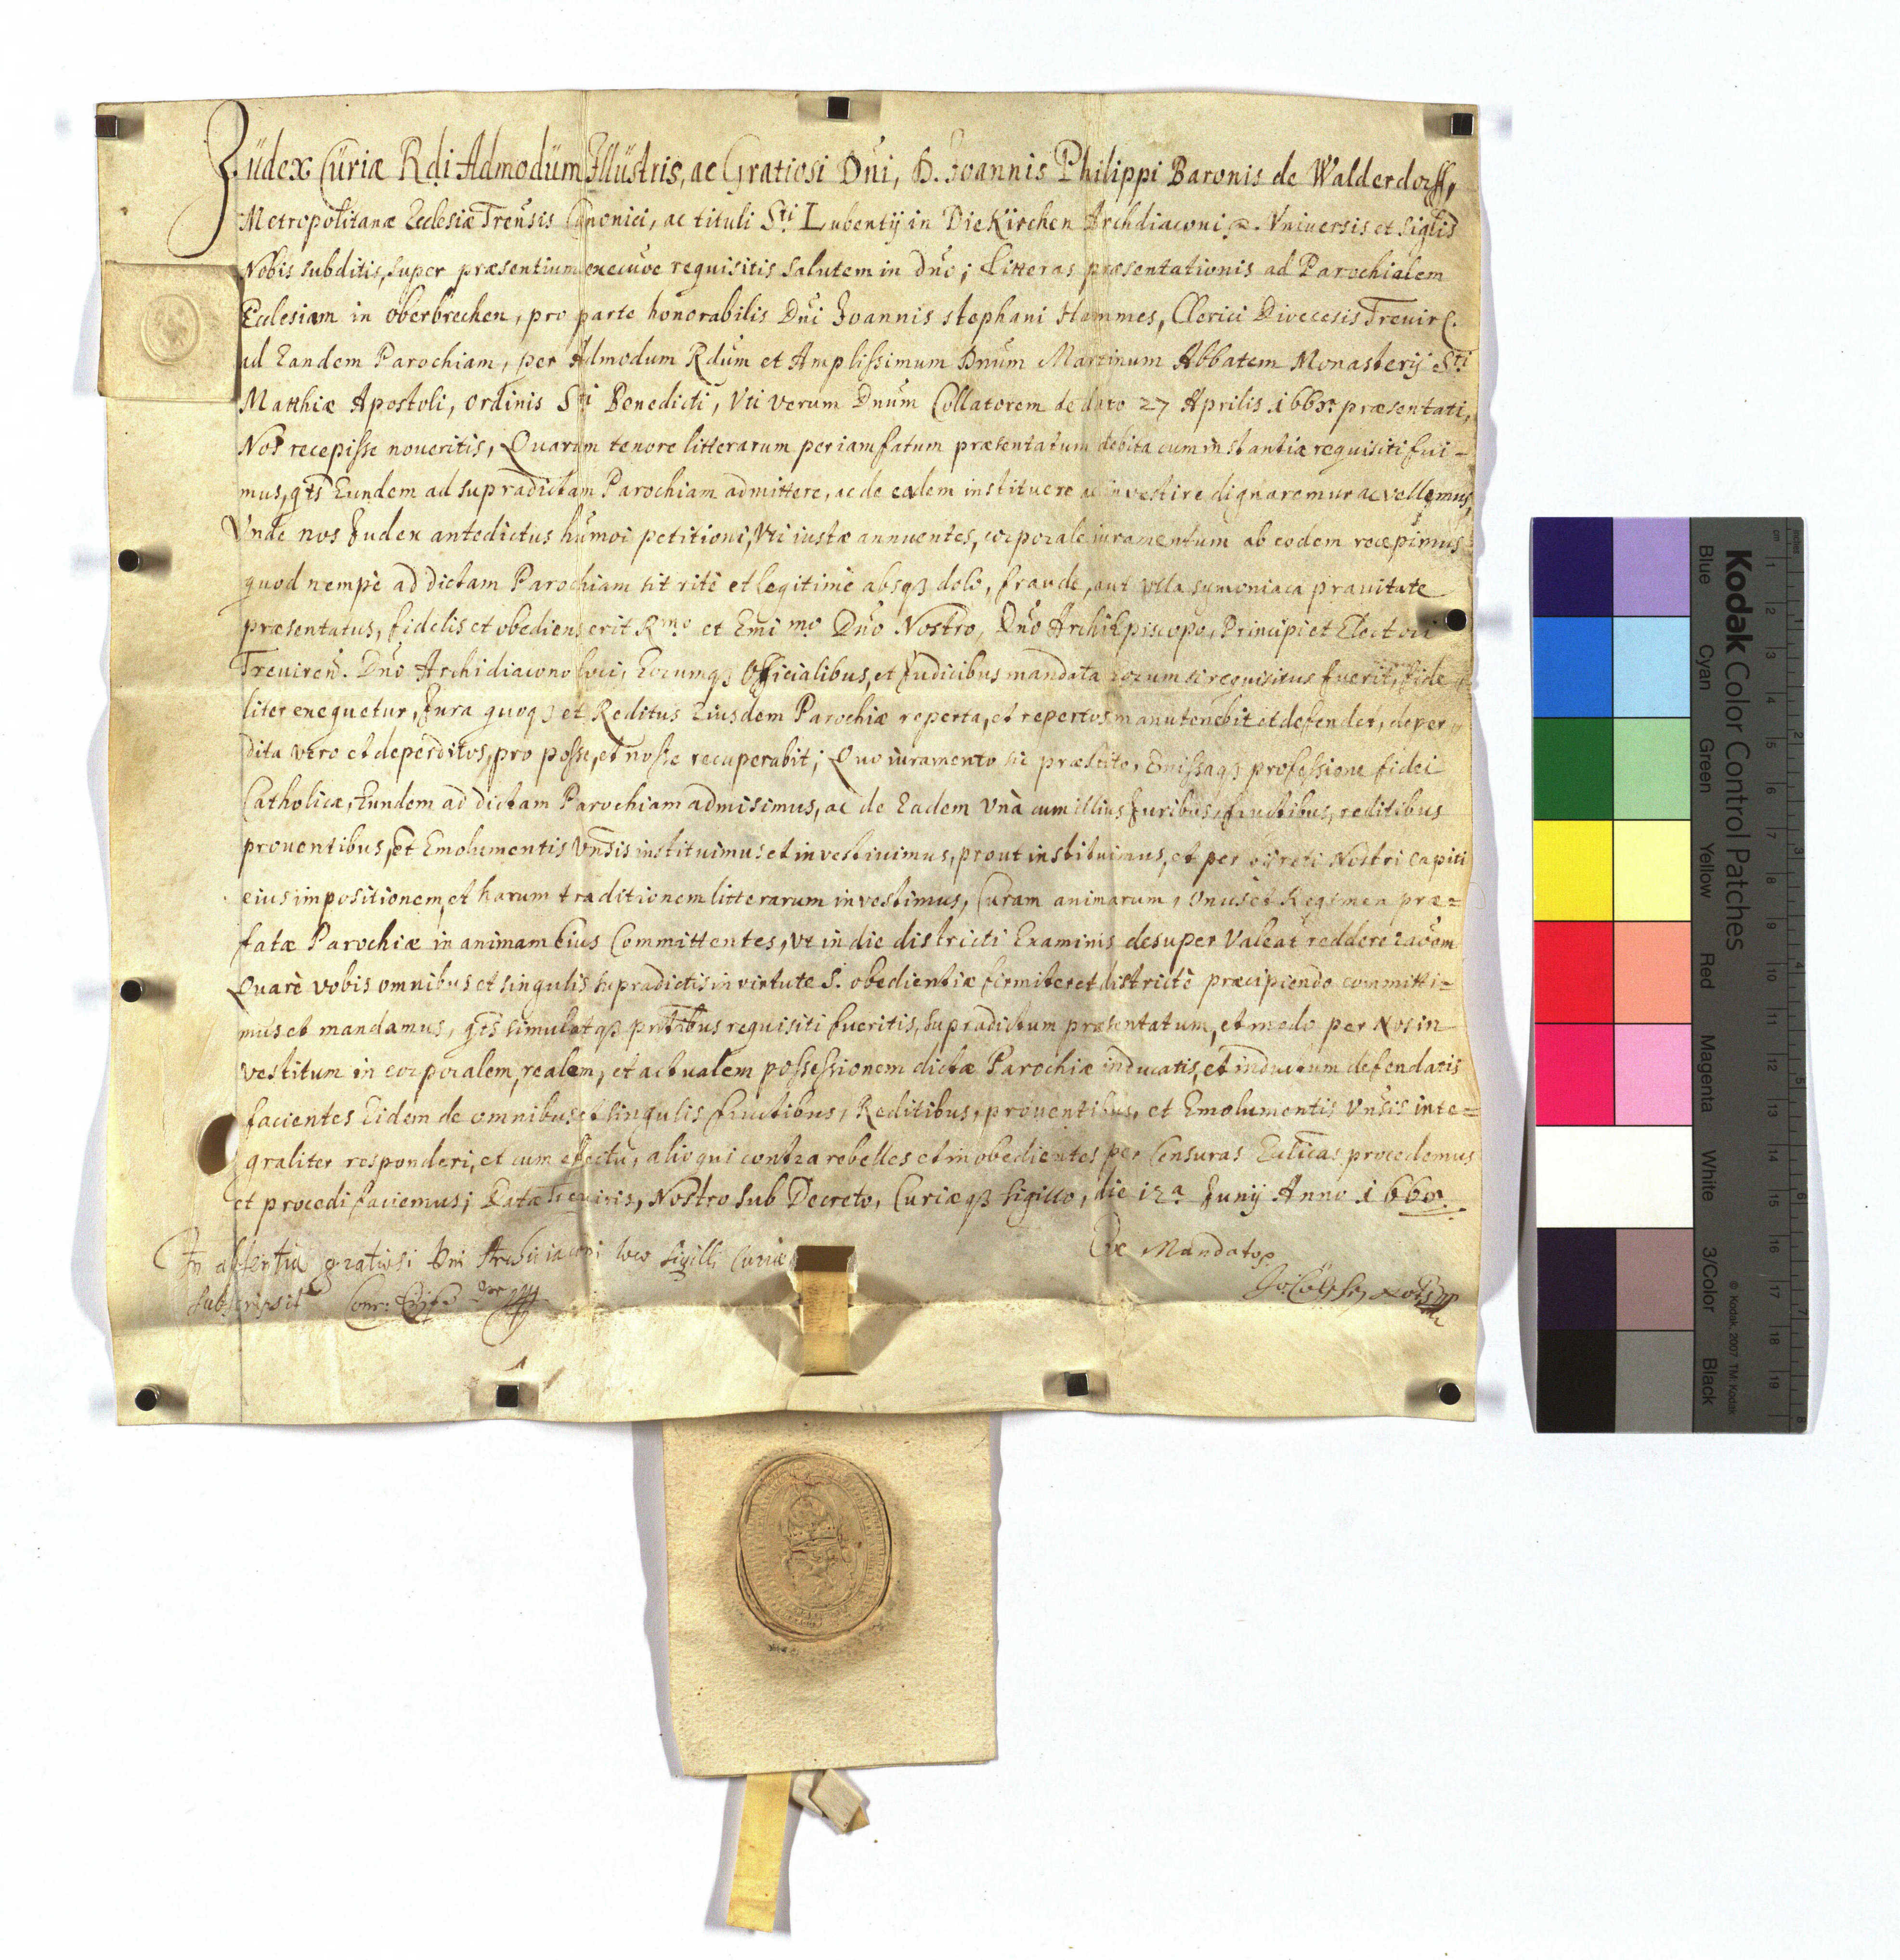 Judex Curiæ Rdi Admodüm Jllüstris, ac Gratiosi Dni, D. Joannis Philippi Baronis de Walderdorff,
Metropolitanæ Ecclesiæ Trensis Canonici, ac tituli Sti Lubentij in DieKirchen Archdiaconi. Vniuersis et siglis
Nobis subditis, super præsentium requisitis salutem in dno; Litteras præsentationis ad Parochialem
Ecclesiam in oberbrechen, pro parte honorabilis Dni Joannis stephani Hammes, Clerici Diœcesis Treuir.
ad Eandem Parochiam, per Admodum Rdum et Amplissimum Dnum Martinum Abbatem Monasterij Sti
Matthiæ Apostoli, ordinis Sti Benedicti, Vti verum Dnum Collatorem de dato 27 Aprilis præsentati,
Nos recepisse noueritis, Quarum tenore litterarum per iamfatum præsentatum debita cum instantia requisiti fui-
mus, qts Eundem ad supradictam Parochiam admittere, ac de eadem instituere ac investire dignaremur ac vellemus,
Vnde nos Judex antedictus humoi petitioni, Vti iustæ annuentes, corporale iuramentum ab eodem recepimus
quod nempè ad dictam Parochiam sit ritè et legitimè absq3 dolo, fraude, aut vlla symoniaca prauitate
præsentatus, fidelis et obediens erit Rmo et Emi mo Dno Nostro, Dno ArchiEpiscopo, Principi et Electori
Treuiren. Dno Archidiacono loci, Eorumq3 Officialibus, et Judicibus mandata eorum si requisitus fuerit, fide
liter exequetur, Jura quoq3 et Reditus Eiusdem Parochiæ reperta, et repertos manutenebit et defendet, deper
dita vero et deperditos, pro posse, et nosse recuperabit; Quo iuramento sic præstito, Emissaq3 professione fidei
Catholicæ, Eundem ad dictam Parochiam admisimus, ac de Eadem Vnà cum illius Juribus, fructibus, reditibus
prouentibus, et Emolumentis Vnsis instituimus et investiuimus, prout instituimus, et per bireti Nostri capiti
eius impositionem, et harum traditionem litterarum investimus, Curam animarum, onus et Regimen præ=
fatæ Parochiæ in animam Eius Committentes, Vt in die districti Examinis desuper Valeat reddere raõem
Quarè vobis omnibus et singulis supradictis in virtute S. obedientiæ firmiter et districtè præcipiendo committi=
mus et mandamus, qts simulatq3 requisiti fueritis, supradictum præsentatum, et modo per Nos in
vestitum in corporalem, realem, et actualem possessionem dictæ Parochiæ inducatis, et inductum defendatis
facientes Eidem de omnibus et singulis fructibus, Reditibus, prouentibus, et Emolumentis Vnsis inte=
graliter responderi, et cum effectu, alioqui contra rebelles et inobedientes per Censuras Ecclicas procedemus
et procedi faciemus; Datæ Treuiris, Nostro sub Decreto, Curiæq3 sigillo, die 12a Junij Anno
In absentia gratiosi Dni Archidiaconi loco sigilli Curiæ
subscripsit
De Mandato
Kodak Color Control Patches
Blue Cyan Green Yellow Red Magenta White 3/Color Black
© Kodak, 2007 TM: Kodak
cm 1 2 3 4 5 6 7 8 9 10 11 12 13 14 15 16 17 18 19
inches 1 2 3 4 5 6 7 8